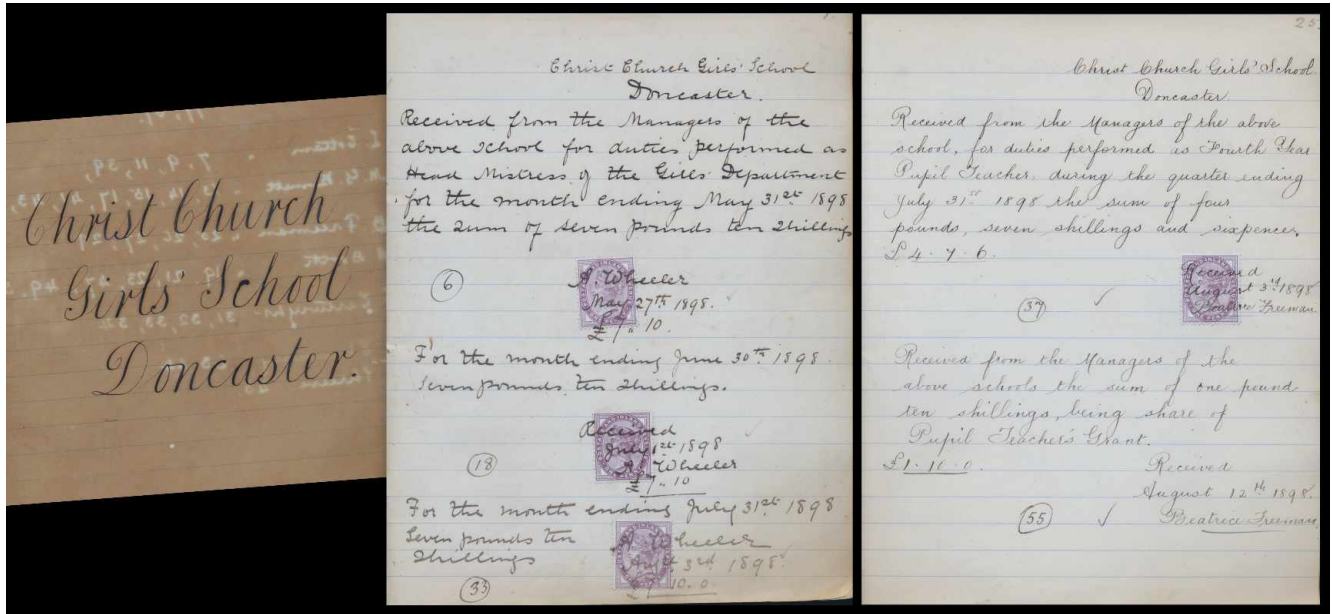 Christ Church
Girls' School
Doncaster.
Christ Church Girls' School
Doncaster.
Received from the Managers of the
above school for duties performed as
Head Mistress of the Girls' Department
for the month ending May 31st 1898
the sum of seven pounds ten shillings
6
A Wheeler
May 27th 1898.
£7 " 10.
For the month ending June 30th 1898.
Seven pounds ten shillings.
Received
July 1st 1898
A Wheeler
18
£7 " 10
For the month ending July 31st 1898
Seven pounds ten
shillings
A Wheeler
Augst 3rd 1898.
£7. 10. 0
33
25
Christ Church Girls' School
Doncaster
Received from the Managers of the above
school, for duties performed as Fourth Year
Pupil Teacher, during the quarter ending
July 31st 1898 the sum of four
pounds, seven shillings and sixpence.
£4 . 7 . 6.
Received
August 3rd 1898
Beatrice Freeman
37
Received from the Managers of the
above schools the sum of one pound
ten shillings, being share of
Pupil Teacher's Grant.
£1 . 10 . 0.
Received
August 12th 1898.
55
Beatrice Freeman.